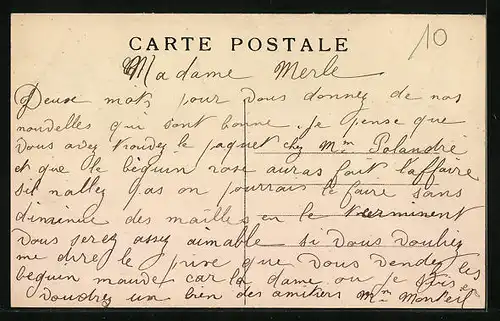 10
CARTE POSTALE
Madame Merle
Deuse mots pour vous donnez de nos
nouvelles qui sont bonne je pense que
vous avez trouvez le paquet chez Mm Polandre
et que le béguin rose auras fait l'affaire
sil nallez pas on pourrais le faire sans
diminue des mailles en le terminent
vous serez assez aimable si vous vouliez
me dire le prise que vous vendez les
beguin mauve car la dame ou je suis en
voudrez un bien des amitiers Mm Monteil